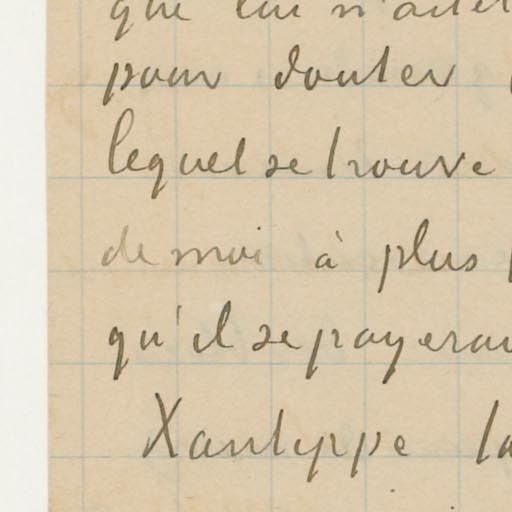 que lui n'a
pour douter
lequel se trouve
de moi à plus
qu'il se payerai
Xantyppe la